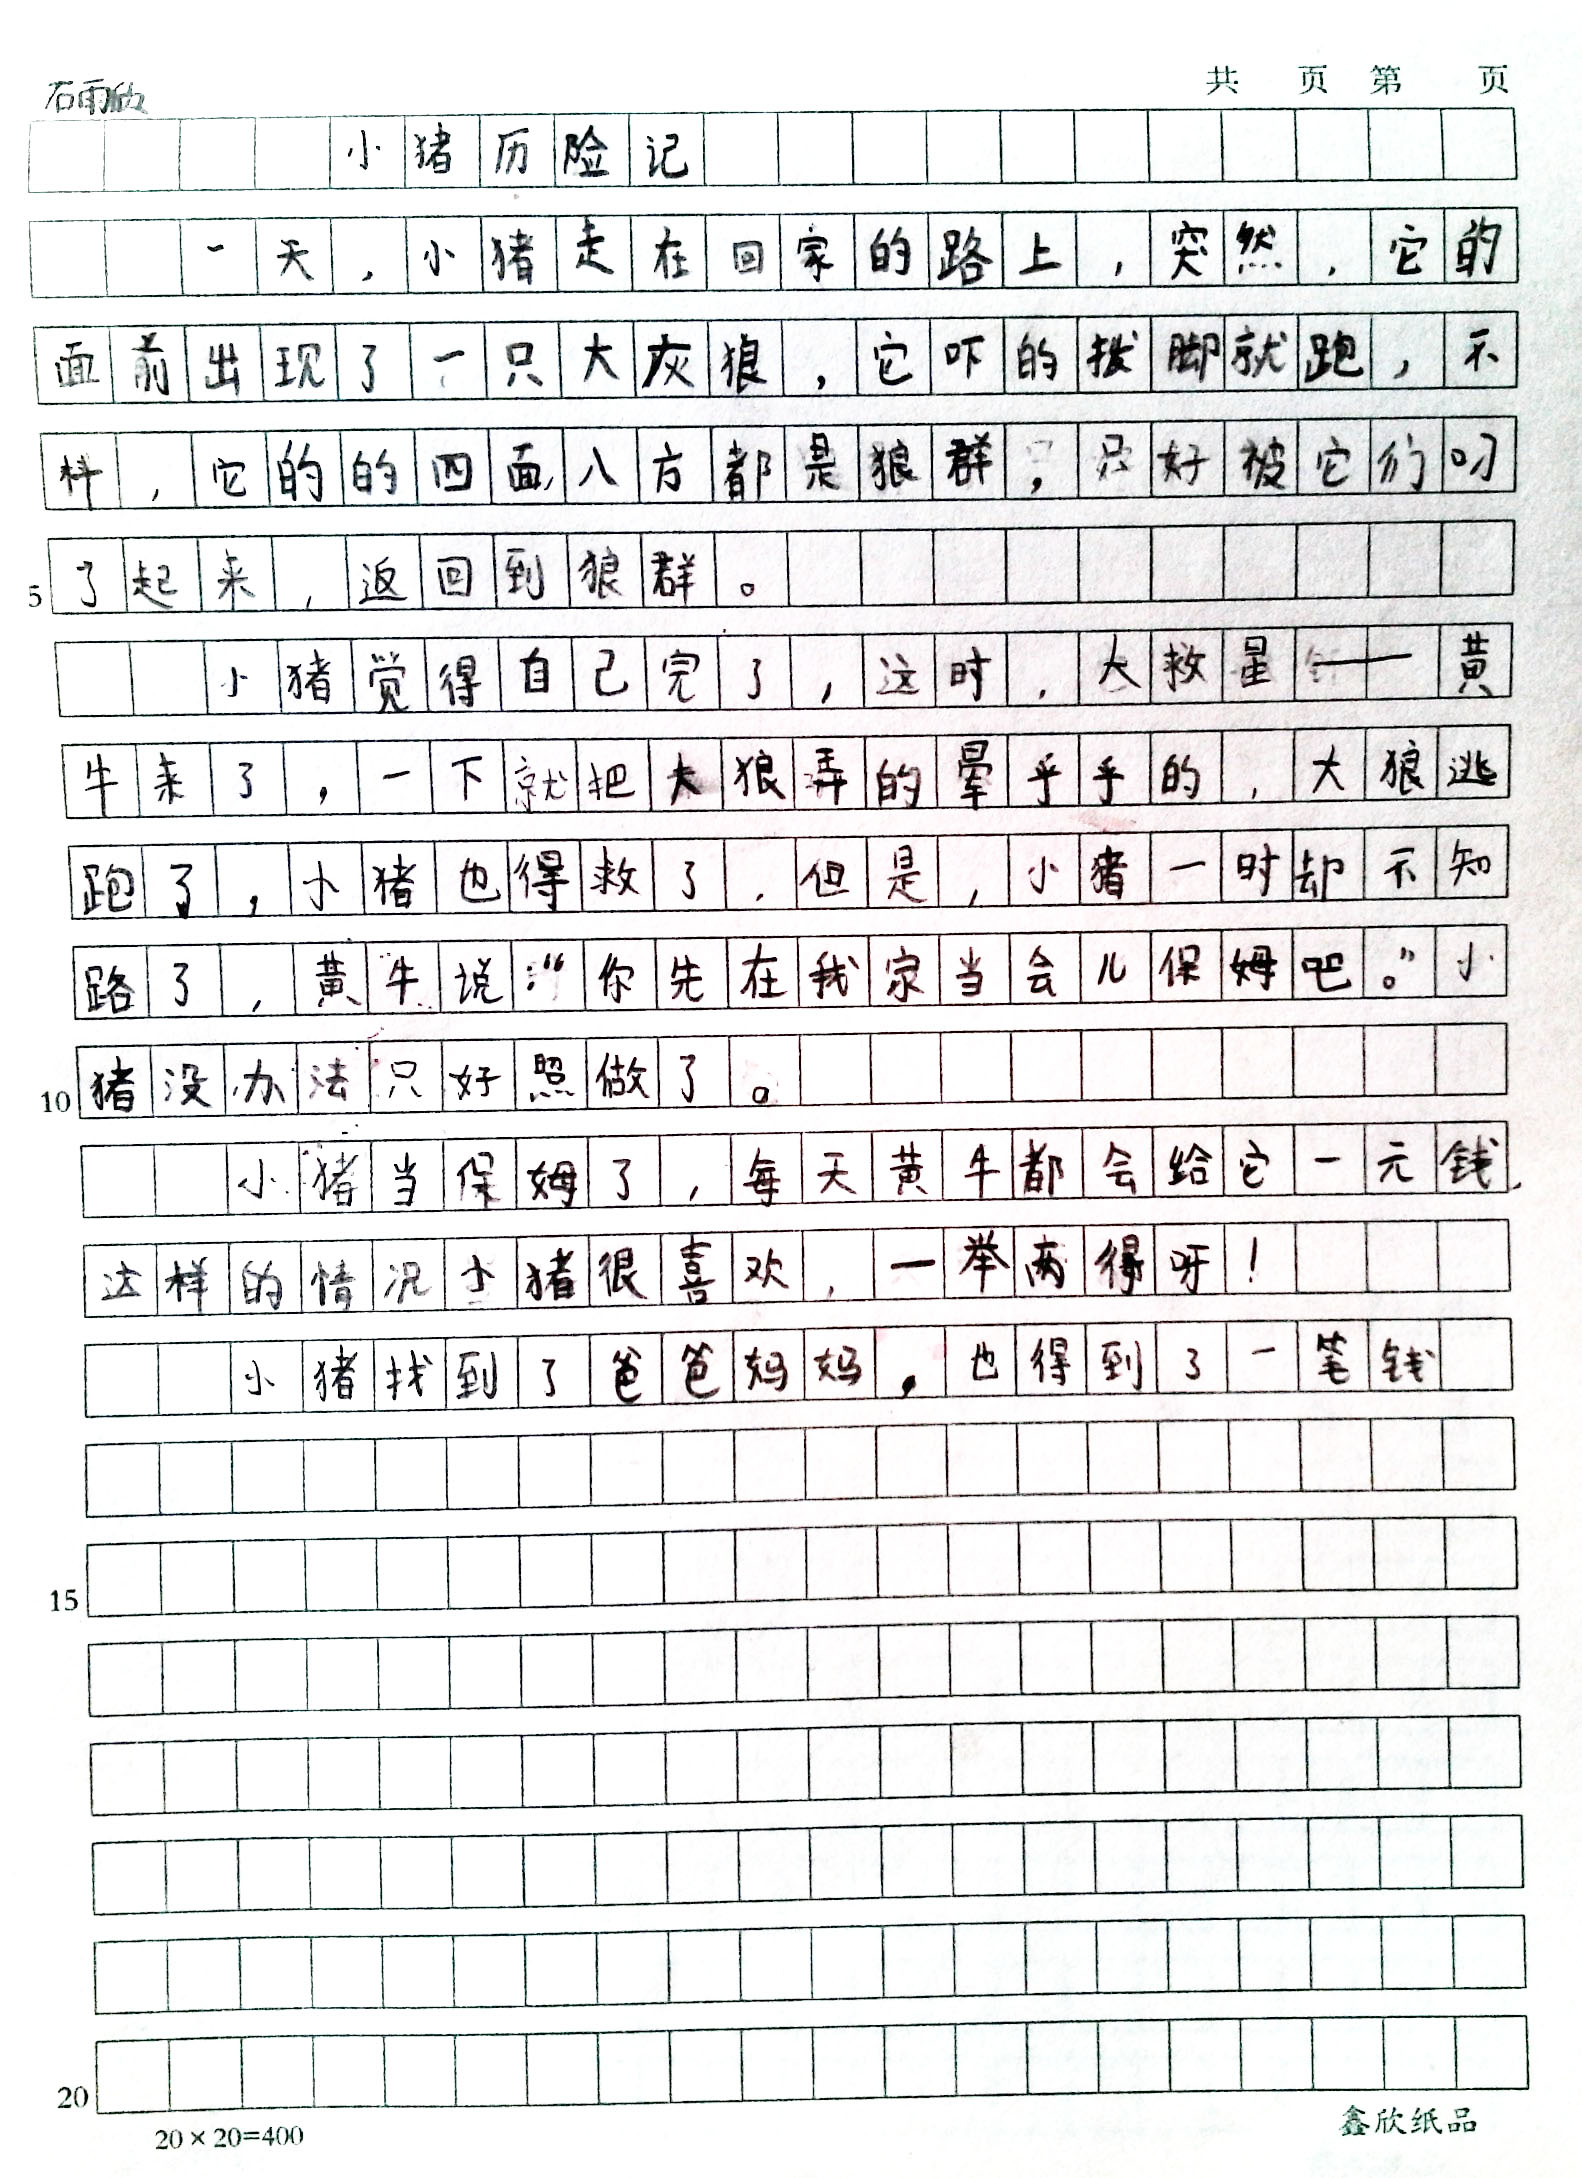 共 页 第 页
石雨欣
小猪历险记
一天，小猪走在回家的路上，突然，它的
面前出现了一只大灰狼，它吓的拔脚就跑，不
料，它的的四面八方都是狼群，只好被它们叼
了起来，返回到狼群。
5
小猪觉得自己完了，这时，大救星——黄
牛来了，一下就把大狼弄的晕乎乎的，大狼逃
跑了，小猪也得救了，但是，小猪一时却不知
路了，黄牛说：“你先在我家当会儿保姆吧。”小
猪没办法只好照做了。
10
小猪当保姆了，每天黄牛都会给它一元钱，
这样的情况小猪很喜欢，一举两得呀！
小猪找到了爸爸妈妈，也得到了一笔钱
15
20
20×20=400
鑫欣纸品